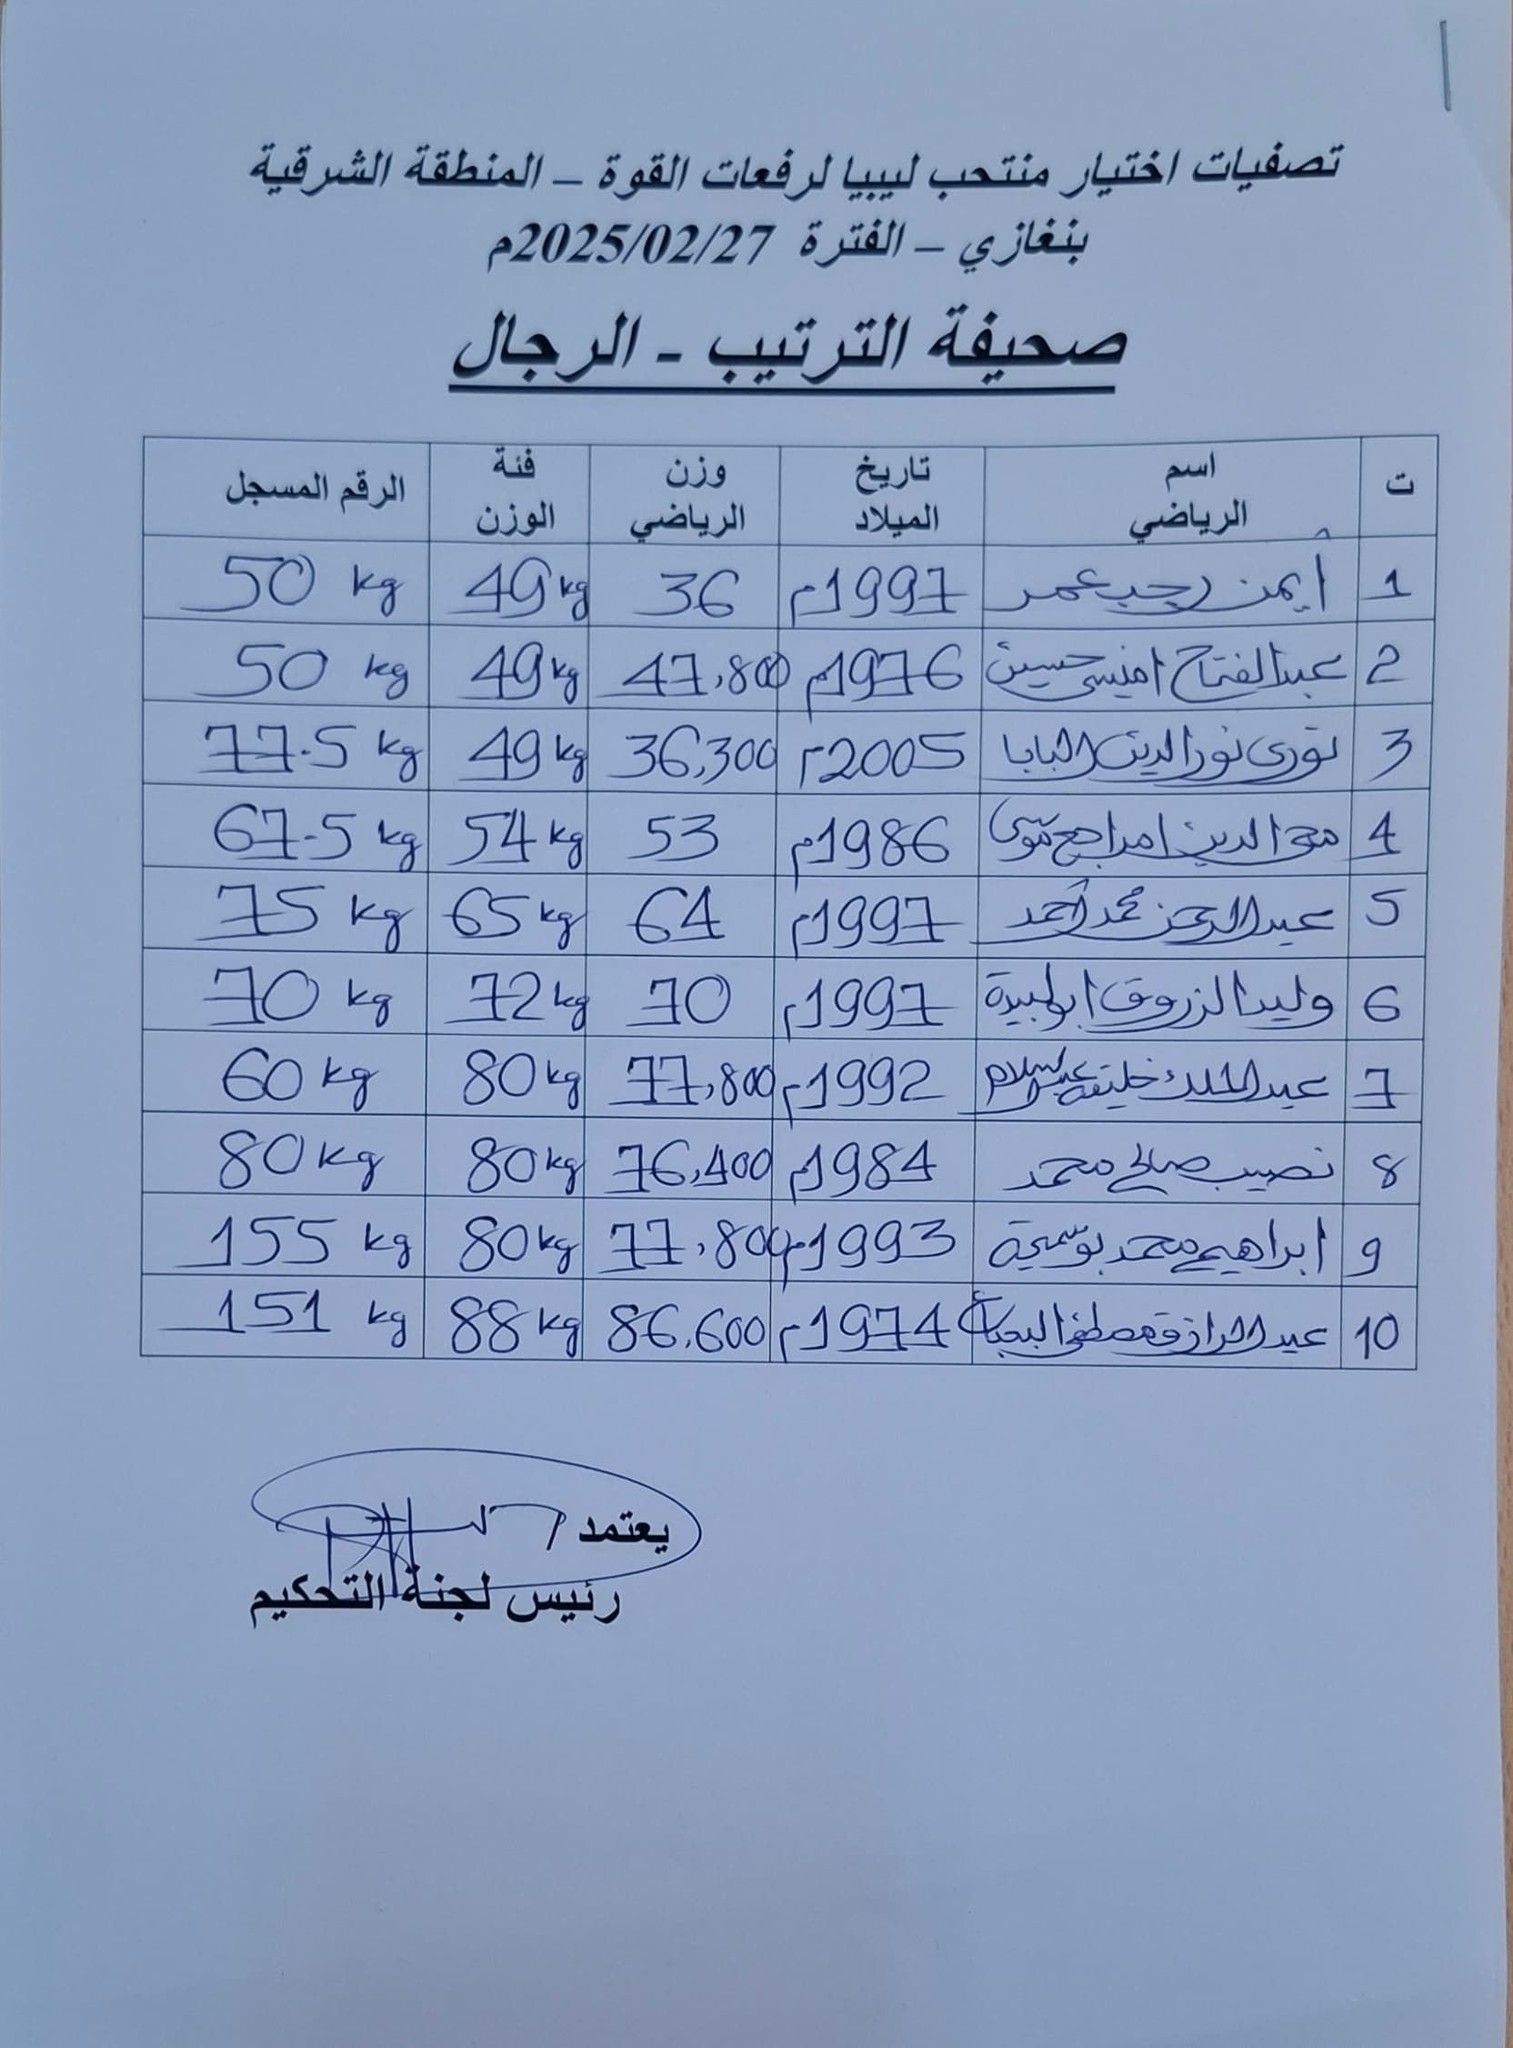 تصفيات اختيار منتحب ليبيا لرفعات القوة – المنطقة الشرقية
بنغازي – الفترة 2025/02/27م
صحيفة الترتيب - الرجال
ت اسم الرياضي تاريخ الميلاد وزن الرياضي فئة الوزن الرقم المسجل
1 أيمن رجب عمر 1997م 36 49kg 50 kg
2 عبدالفتاح امنيسي حسين 1976م 47,800 49kg 50 kg
3 نوري نورالدين البابا 2005م 36,300 49kg 77.5 kg
4 الدين امراجع موسى 1986م 53 54kg 67.5 kg
5 عبدالرحمن محمد أحمد 1997م 64 65kg 75 kg
6 وليد الزروق 1997م 70 72kg 70 kg
7 عبدالملك خليفة عبدالسلام 1992م 77,800 80kg 60 kg
8 نصيب صالح محمد 1984م 76,400 80kg 80 kg
9 ابراهيم محمد 1993م 77,800 80kg 155 kg
10 عبدالرازق مصطفى 1974م 86.600 88kg 151 kg
يعتمد
رئيس لجنة التحكيم